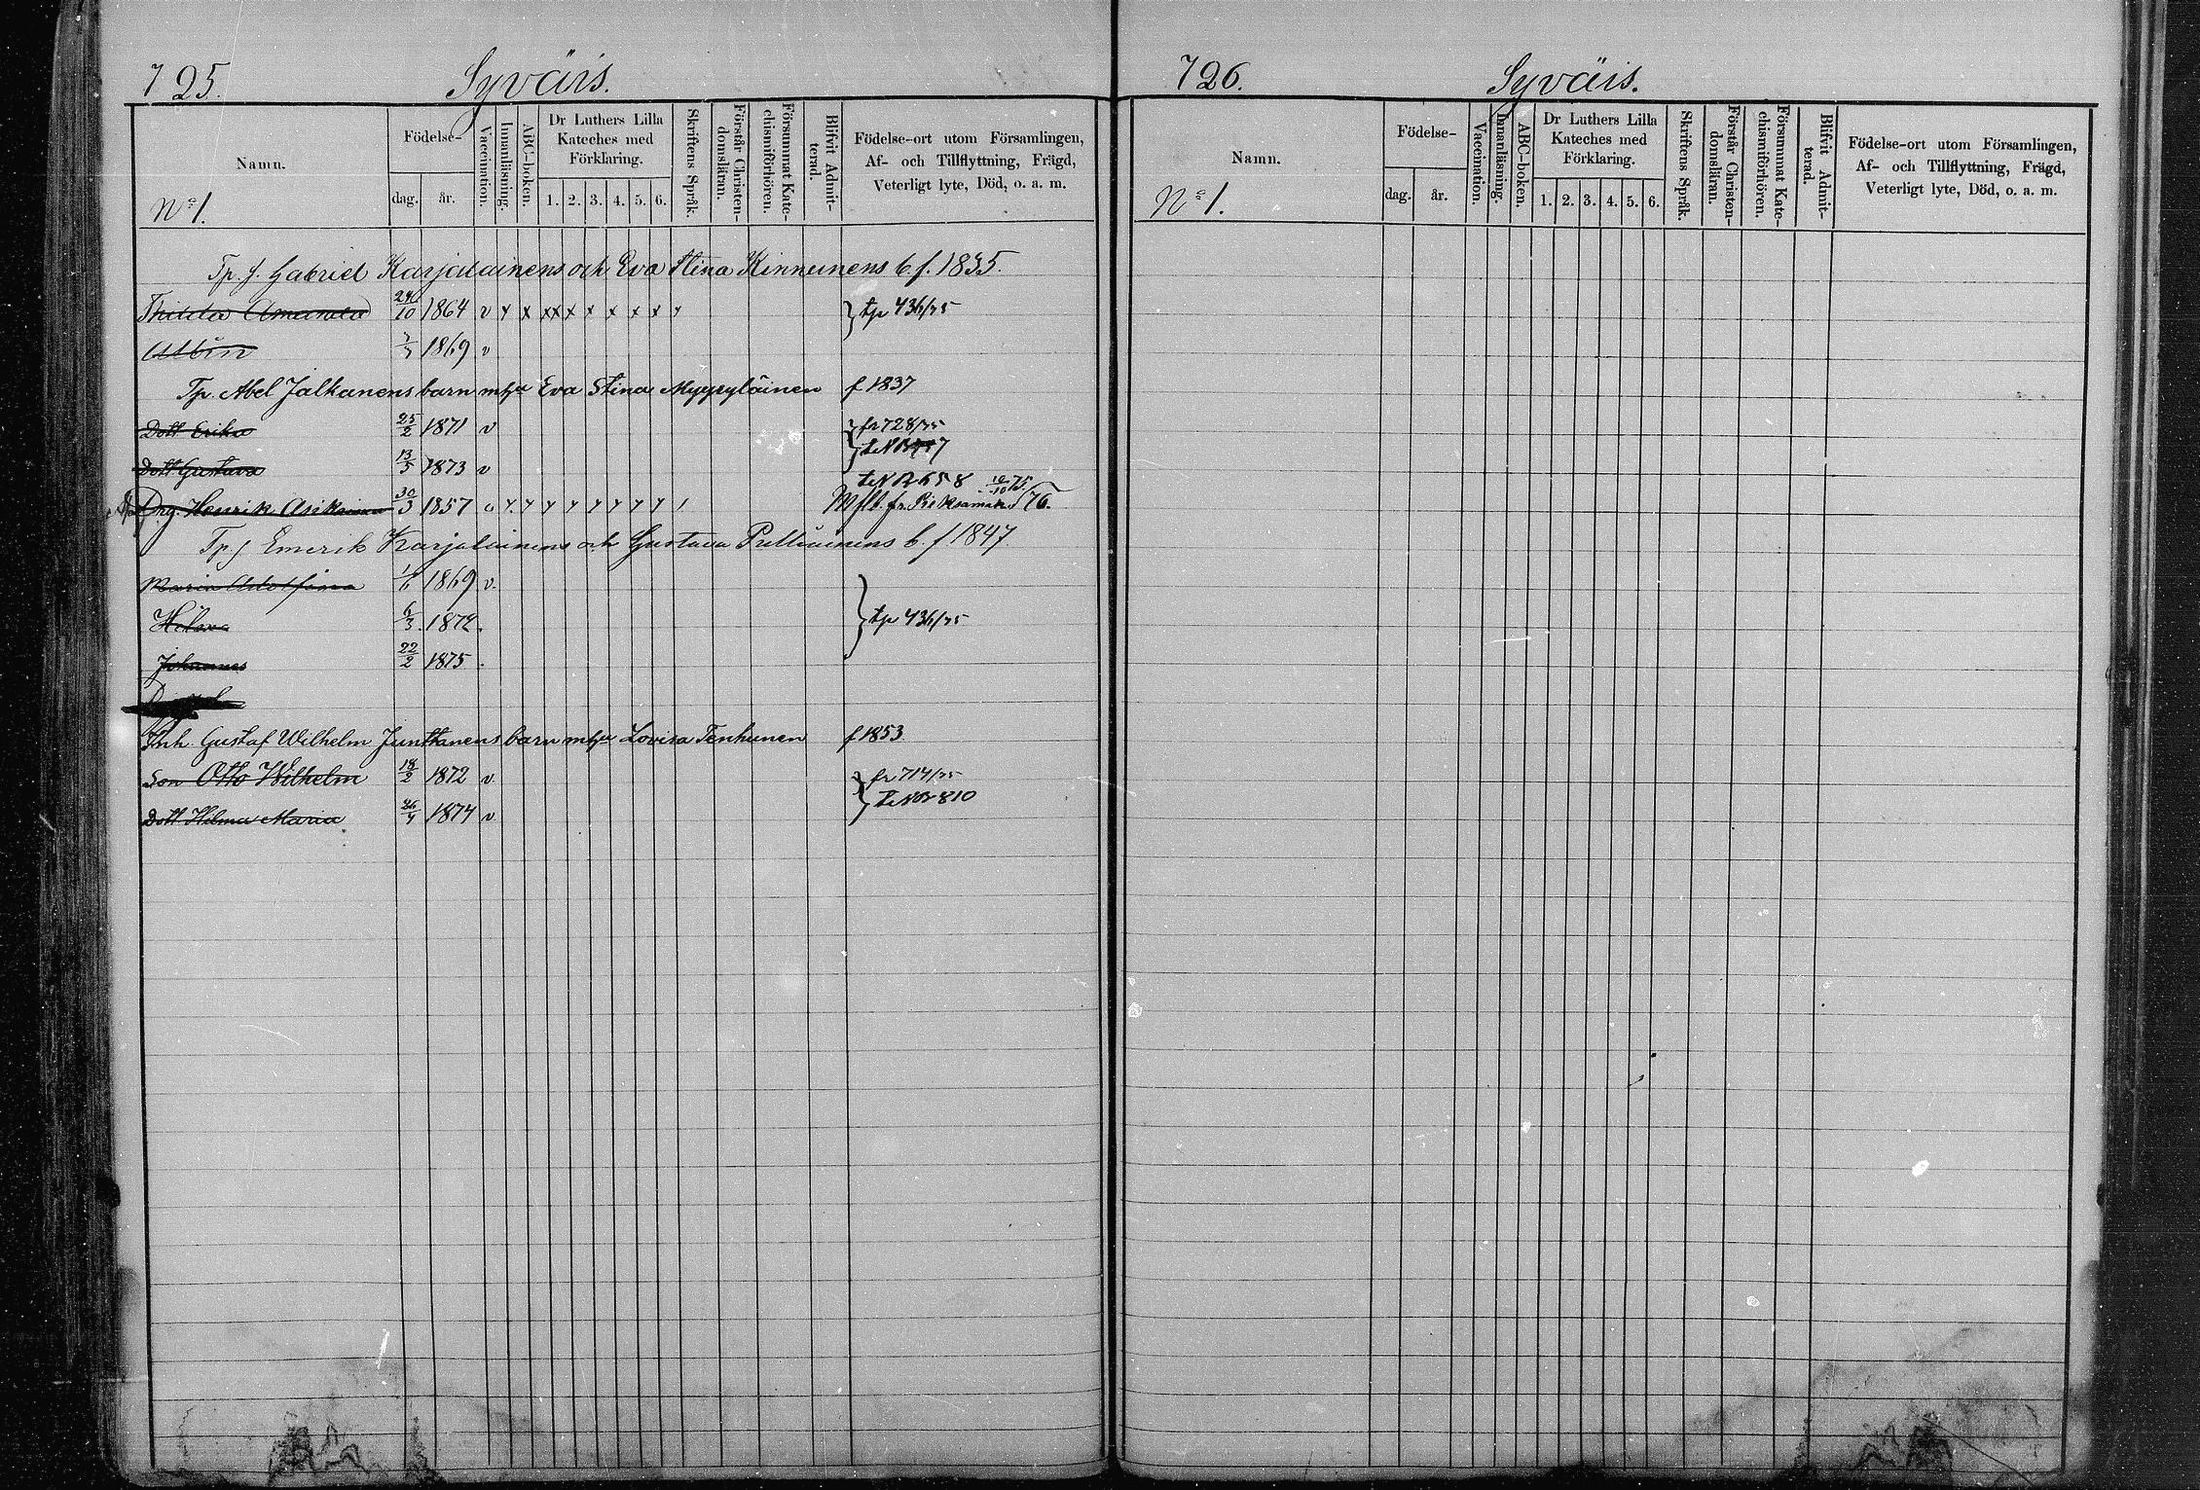 725.
Syväis.
Namn.
Födelse-
dag.
år.
Vaccination.
Innanläsning.
ABC-boken.
Dr Luthers Lilla
Kateches med
Förklaring.
1. 2. 3. 4. 5. 6.
Skriftens Språk.
Förstår Christen-
domsläran.
Försummat Kate-
chismiförhören.
Blifvit Admit-
terad.
Födelse-ort utom Församlingen,
Af- och Tillflyttning, Frägd,
Veterligt lyte, Död, o. a. m.
No 1.
Tp. f. Gabriel Karjalainens och Eva Stina Kinnunens b. f. 1835.
Amanda 24/10 1864 v x x xx x x x x x } tp 436/75
Albin 1869 v
Tp. Abel Jalkanens barn m hu Eva Stina Myyryläinen f 1837
Dott Erika 25/2 1871 v } fr 728/75
Dott Gustava 13/5 1873 v
658 10/10 75.
Drg. Henrik Asikainen 30/3 1857 v x x x x x x x x x / Mflb. fr. 76.
Tp f Emerik Karjalainens och Gustava b. f 1847
Maria Adolfina 1869 v.
Hilma 6/3 1872. } tp 436/75
Johannes 22/2 1875.
Inh. Gustaf Wilhelm Junttanens barn m hu Lovisa Tenhunen f 1853
Son Otto Wilhelm 18/2 1872 v } fr 714/75
810
Dott Hilma Maria 26/4 1874 v
726.
Syväis.
Namn.
Födelse-
dag.
år.
Vaccination.
Innanläsning.
ABC-boken.
Dr Luthers Lilla
Kateches med
Förklaring.
1. 2. 3. 4. 5. 6.
Skriftens Språk.
Förstår Christen-
domsläran.
Försummat Kate-
chismiförhören.
Blifvit Admit-
terad.
Födelse-ort utom Församlingen,
Af- och Tillflyttning, Frägd,
Veterligt lyte, Död, o. a. m.
No 1.